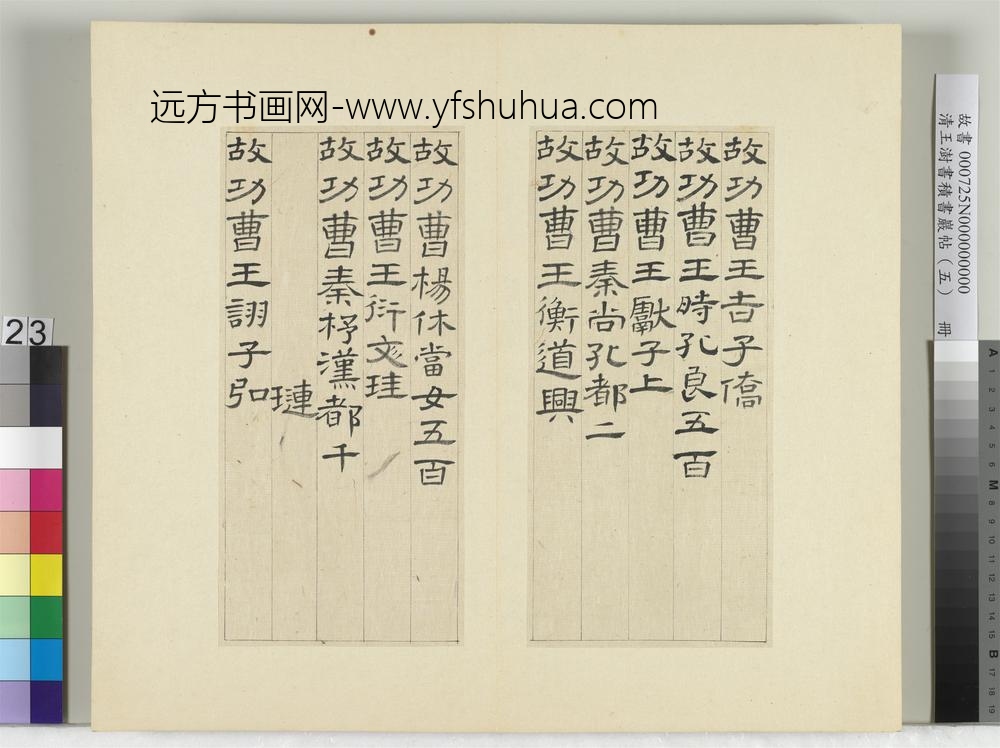 远方书画网-www.yfshuhua.com
故功曹王吉子僑
故功曹王時孔良五百
故功曹王獻子上
故功曹秦尚孔都二
故功曹王衡道興
故功曹楊休當女五百
故功曹王衍文珪
故功曹秦杼漢都千
璉
故功曹王詡子弘
故書000725N000000000
清王澍書積書巖帖（五） 冊
23
A 1 2 3 4 5 6 M 8 9 10 11 12 13 14 15 B 17 18 19